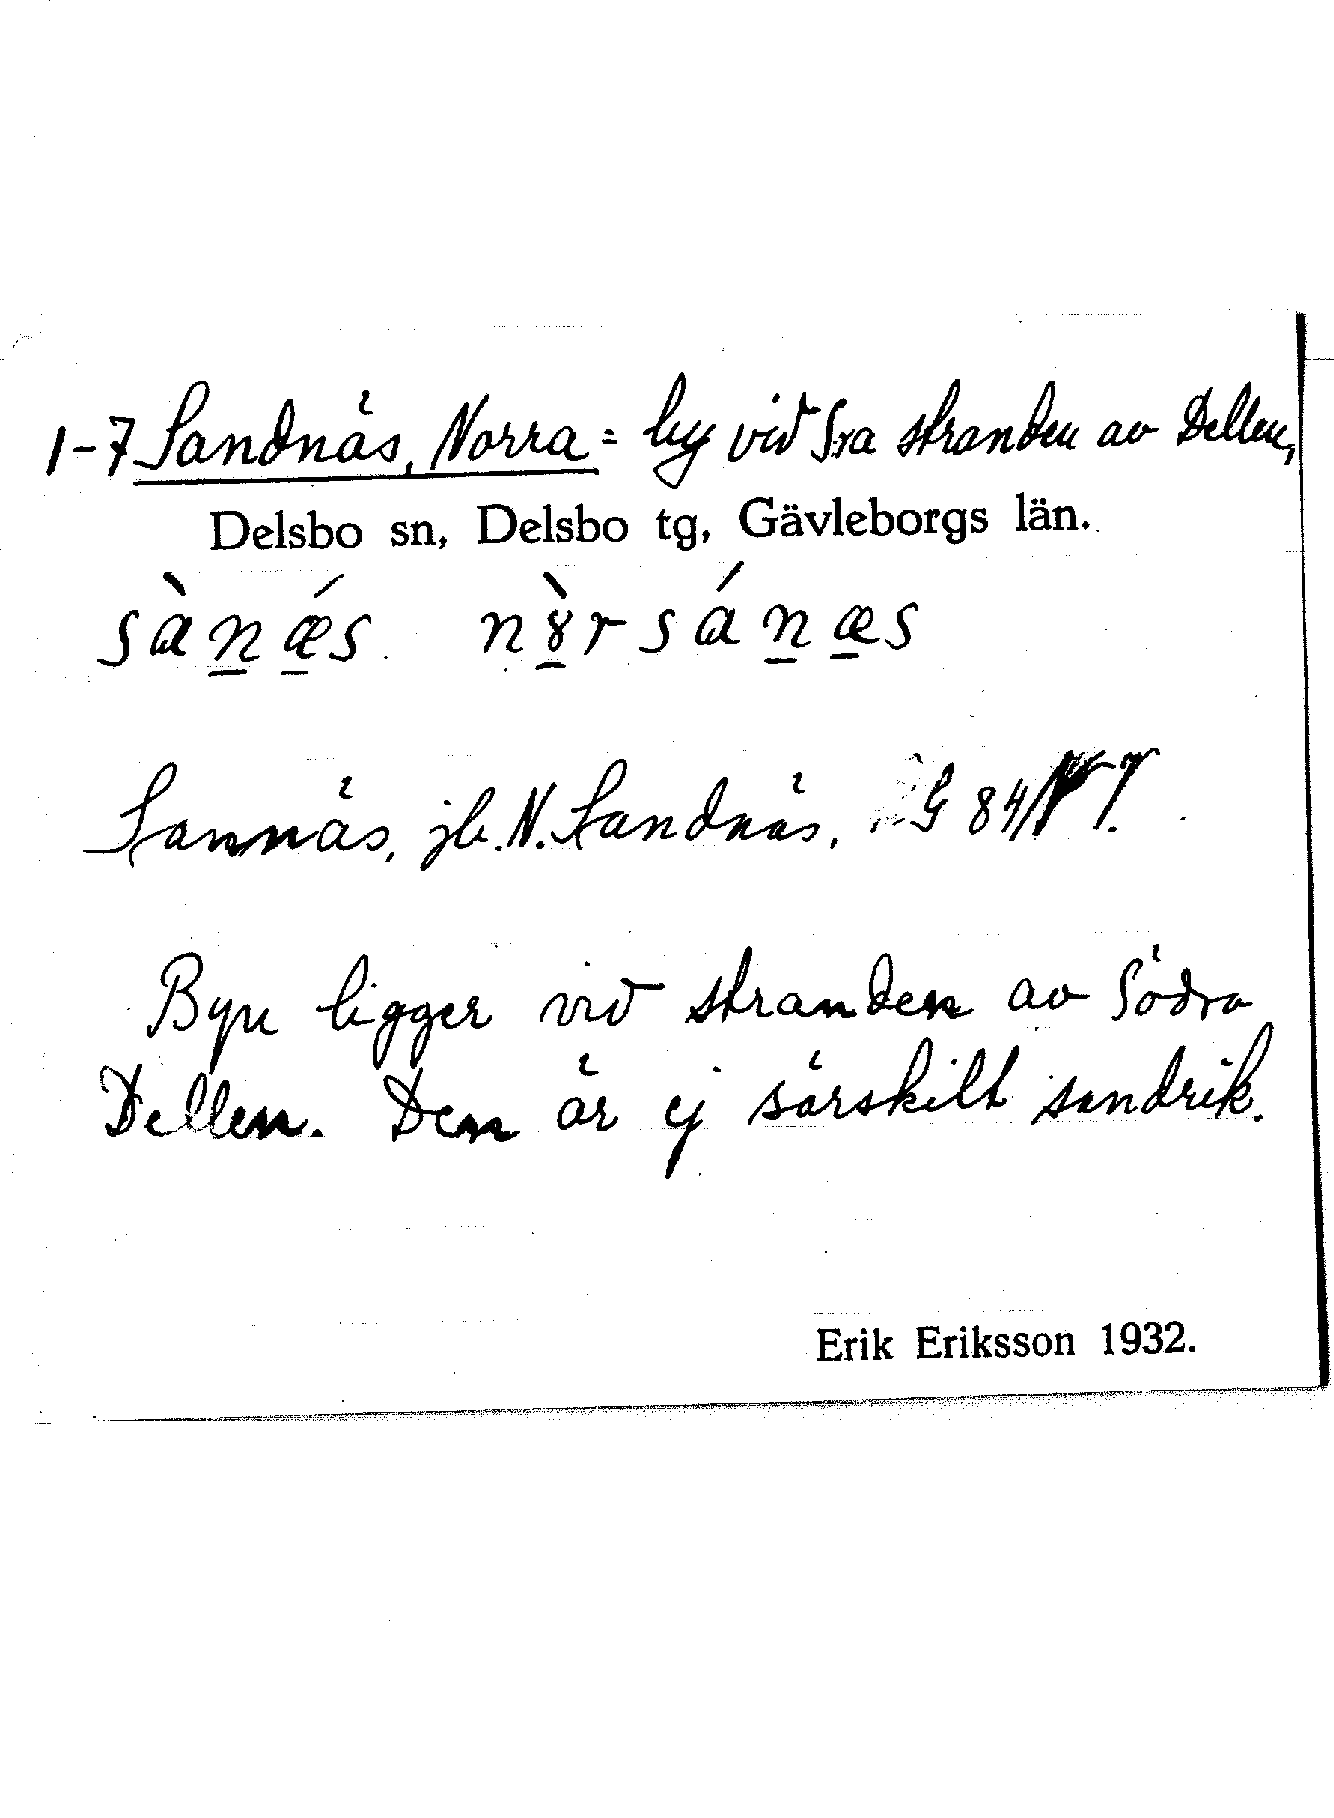 1-7 Sandnäs, Norra = by vid Sra stranden av Dellen,
Delsbo sn, Delsbo tg, Gävleborgs län.
sànǽs nȣ̀rsánæs
Sannäs, jb. N. Sandnäs, G 84
Byn ligger vid stranden av Södra
Dellen. Den är ej särskilt sandrik.
Erik Eriksson 1932.